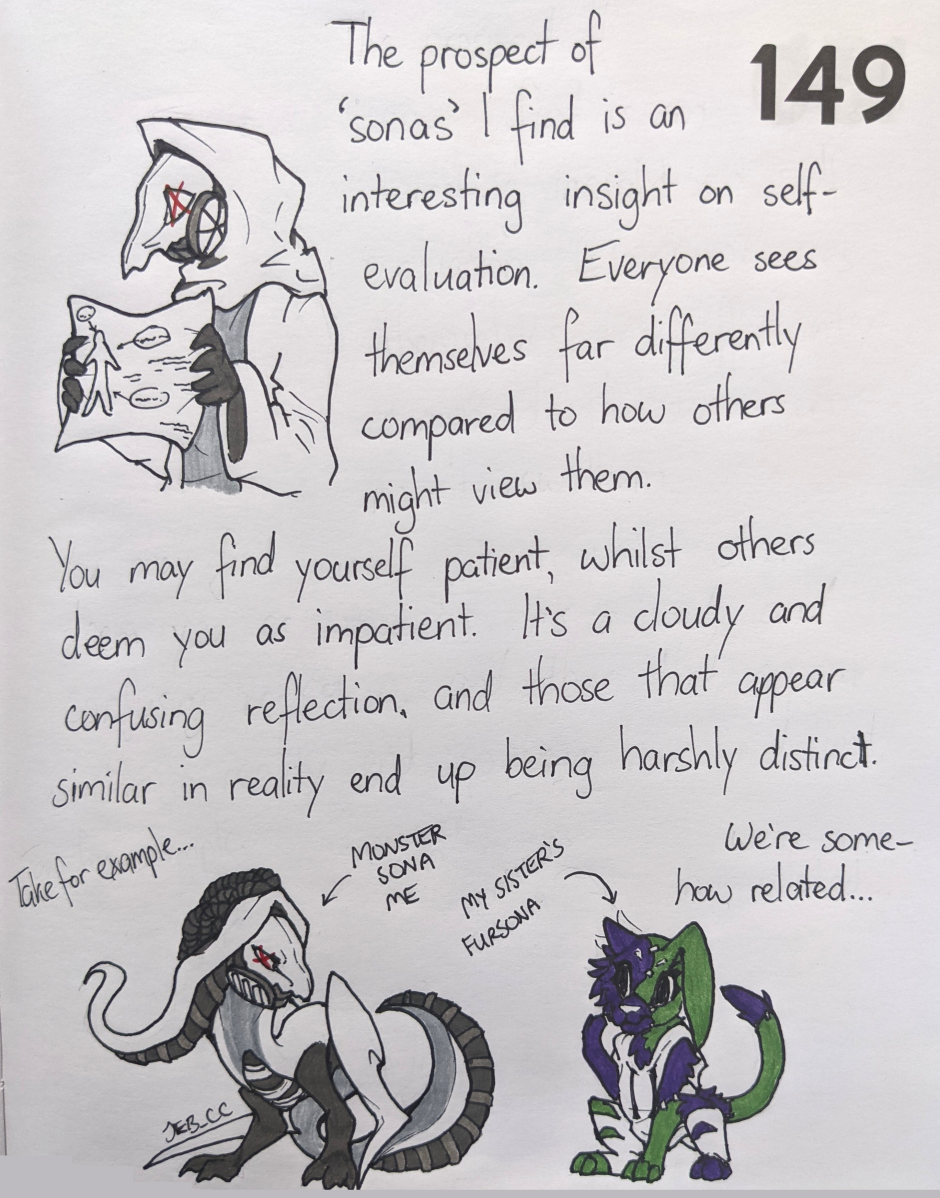 The prospect of
149
'sonas' I find is an
interesting insight on self-
evaluation. Everyone sees
themselves far differently
compared to how others
might view them.
You may find yourself patient, whilst others
deem you as impatient. It's a cloudy and
confusing reflection, and those that appear
similar in reality end up being harshly distinct.
Take for example...
MONSTER
SONA
ME
MY SISTER'S
FURSONA
We're some-
how related...
JEB_CC